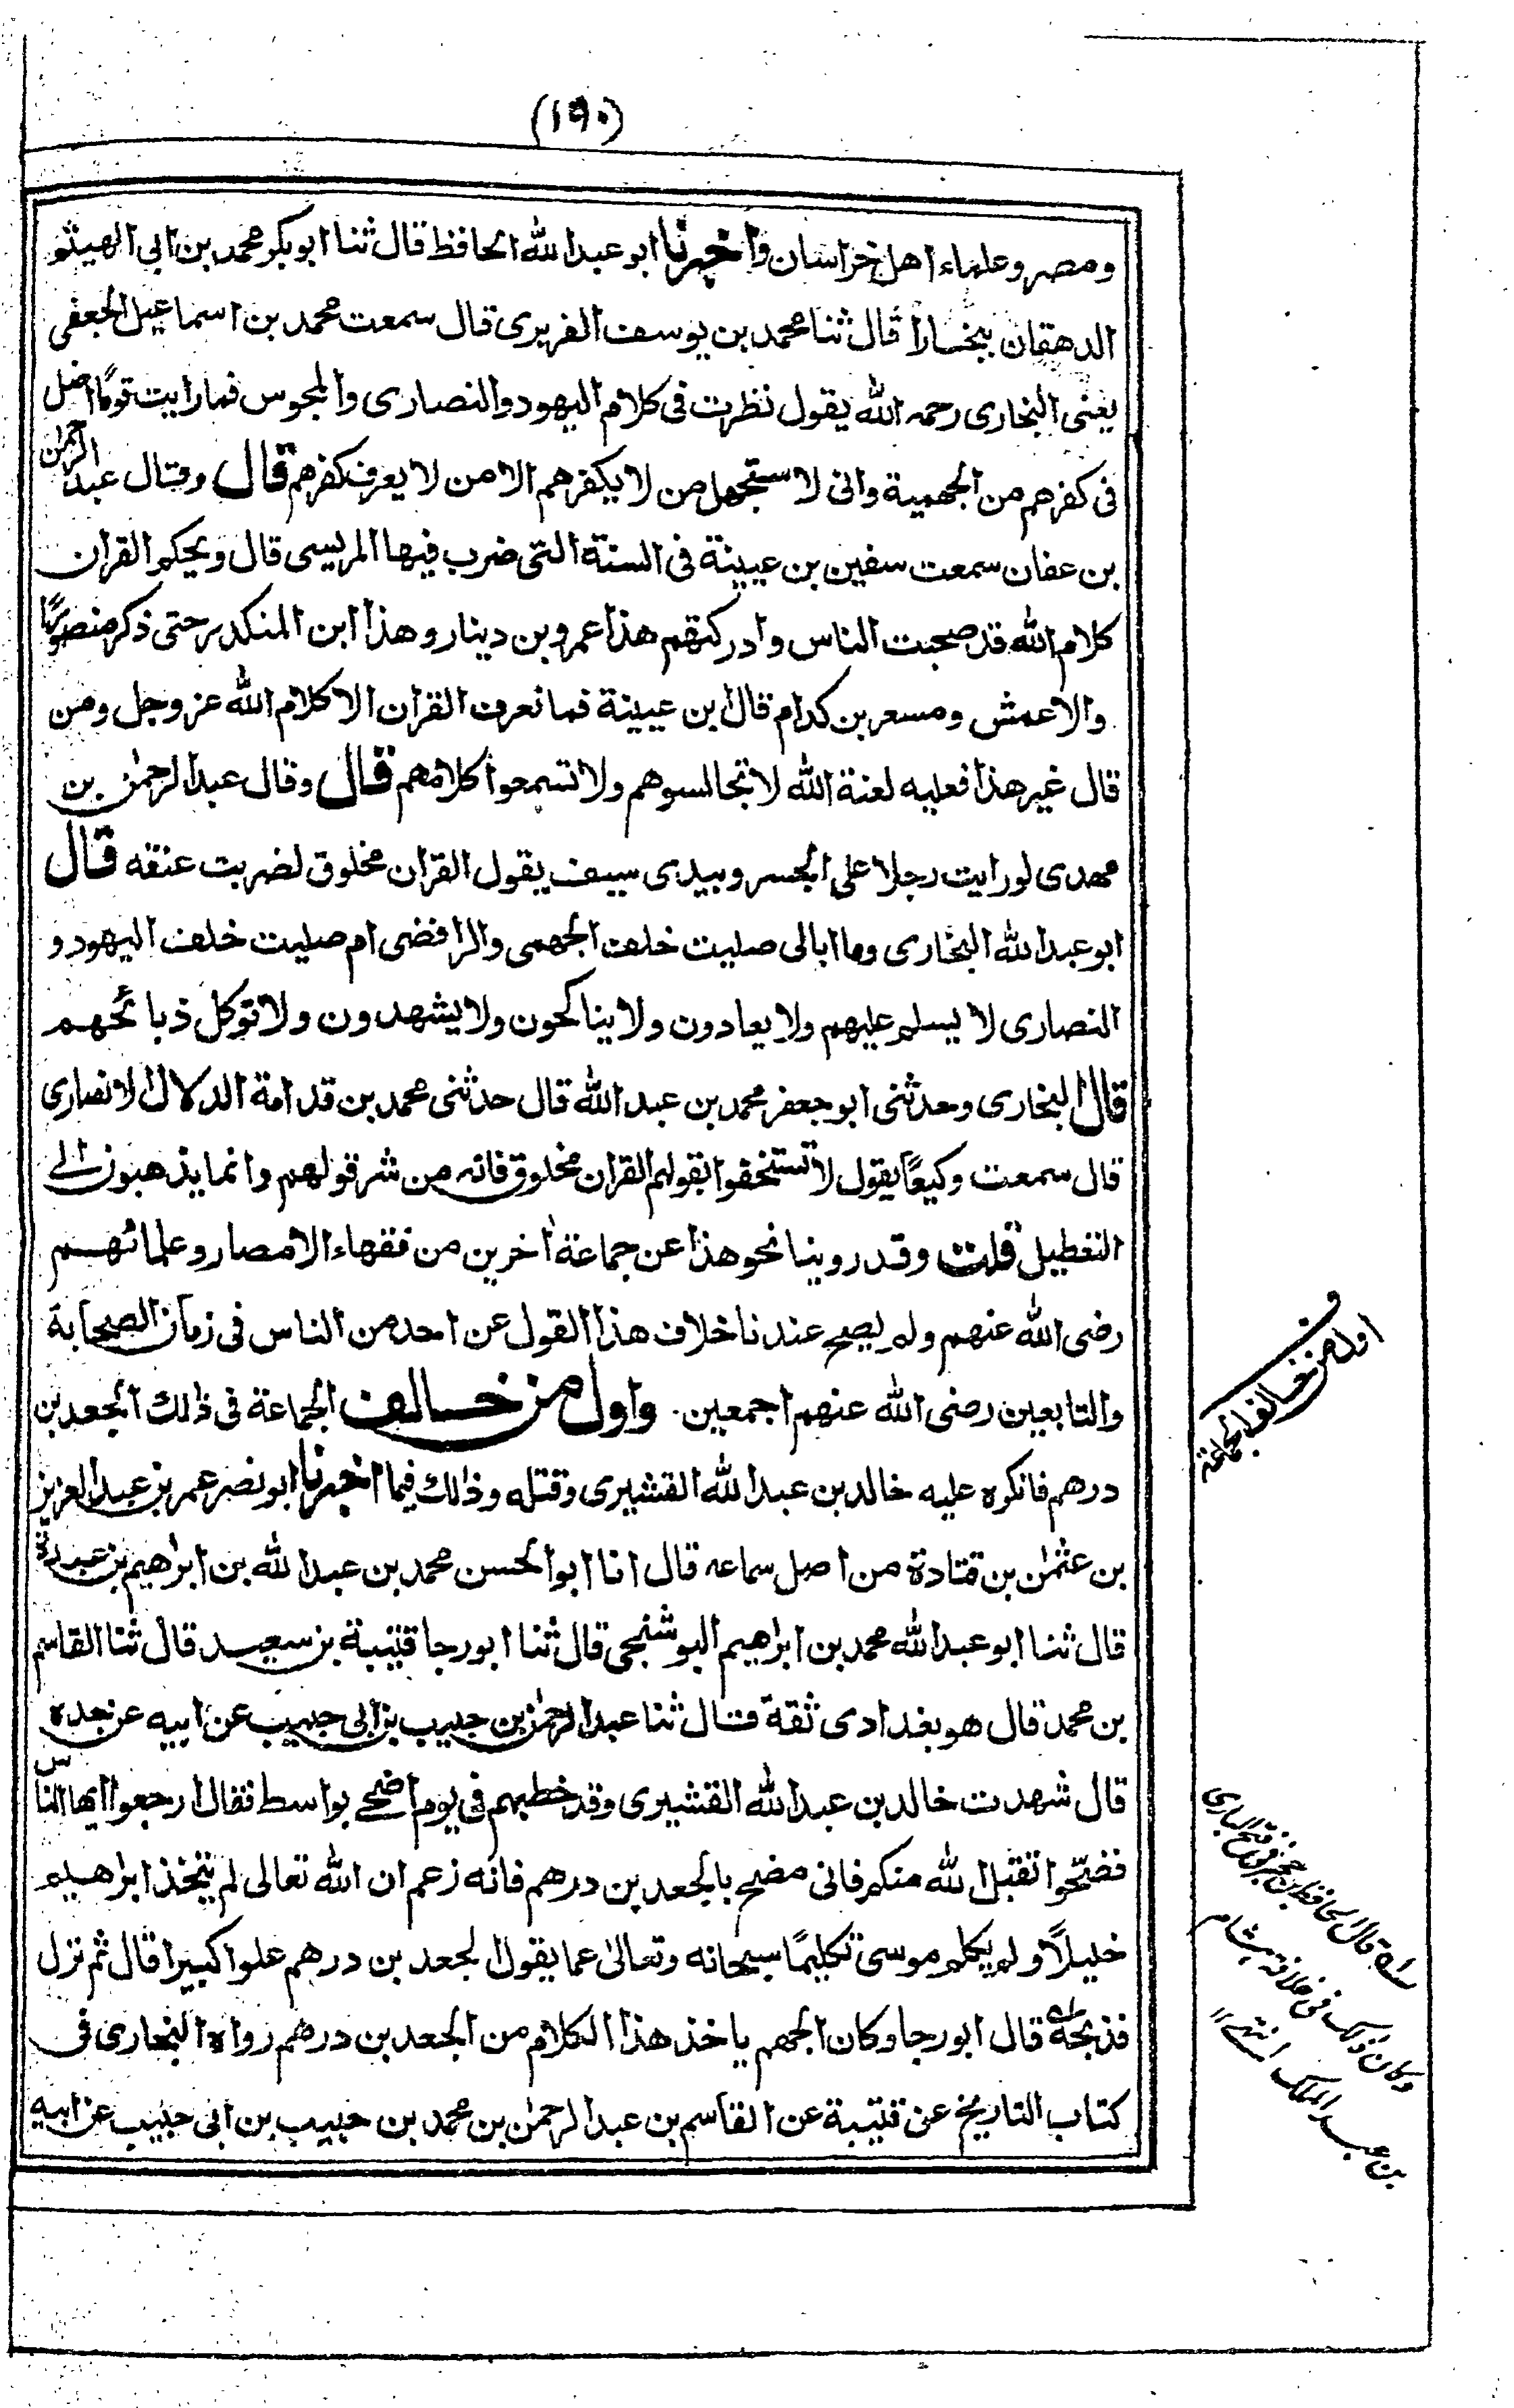 (۱۹۰)
ومصر وعلماء اهل خراسان واخبرنا ابو عبد الله الحافظ قال ثنا ابو بكر محمد بن ابى الهيثم
الدهقان ببخارا قال ثنا محمد بن يوسف الفربرى قال سمعت محمد بن اسماعيل الجعفى
يعنى البخارى رحمه الله يقول نظرت فى كلام اليهود والنصارى والمجوس فما رايت قومًا اضل
فى كفرهم من الجهمية وانى لاستجهل من لا يكفرهم الا من لا يعرف كفرهم قال وقال عبد الرحمٰن
بن عفان سمعت سفين بن عيينة فى السنة التى ضرب فيها المريسى قال ويحكم القران
كلام الله قد صحبت الناس وادركتهم هذا عمرو بن دينار وهذا ابن المنكدر حتى ذكر منصورًا
والاعمش ومسعر بن كدام قال ابن عيينة فما نعرف القران الا كلام الله عز وجل ومن
قال غير هذا فعليه لعنة الله لا تجالسوهم ولا تسمعوا كلامهم قال وقال عبد الرحمٰن بن
مهدى لو رايت رجلا على الجسر وبيدى سيف يقول القران مخلوق لضربت عنقه قال
ابو عبد الله البخارى وما ابالى صليت خلف الجهمى والرافضى ام صليت خلف اليهود و
النصارى لا يسلم عليهم ولا يعادون ولا يناكحون ولا يشهدون ولا توكل ذبائحهم
قال البخارى وحدثنى ابو جعفر محمد بن عبد الله قال حدثنى محمد بن قدامة الدلال الانصارى
قال سمعت وكيعًا يقول لا تستخفوا بقولهم القران مخلوق فانه من شر قولهم وانما يذهبون الى
التعطيل قلت وقد روينا نحو هذا عن جماعة اخرين من فقهاء الامصار وعلمائهم
رضى الله عنهم ولم يصح عندنا خلاف هذا القول عن احد من الناس فى زمان الصحابة
والتابعين رضى الله عنهم اجمعين. واول من خالف الجماعة فى ذلك الجعد بن
درهم فانكره عليه خالد بن عبد الله القشيرى وقتله وذلك فيما اخبرنا ابو نصر عمر بن عبد العزيز
بن عثمٰن بن قتادة من اصل سماعه قال انا ابو الحسن محمد بن عبد الله بن ابراهيم بن عبدة
قال ثنا ابو عبد الله محمد بن ابراهيم البوشنجى قال ثنا ابو رجا قتيبة بن سعيد قال ثنا القاسم
بن محمد قال هو بغدادى ثقة قال ثنا عبد الرحمٰن بن حبيب بن ابى حبيب عن ابيه عن جده
قال شهدت خالد بن عبد الله القشيرى وقد خطبهم فى يوم اضحى بواسط فقال ارجعوا ايها الناس
فضحّوا تقبل الله منكم فانى مضح بالجعد بن درهم فانه زعم ان الله تعالى لم يتخذ ابراهيم
خليلًا ولم يكلم موسى تكليمًا سبحانه وتعالىٰ عما يقول الجعد بن درهم علوا كبيرا قال ثم نزل
فذبحه قال ابو رجا وكان الجهم ياخذ هذا الكلام من الجعد بن درهم رواه البخارى فى
كتاب التاريخ عن قتيبة عن القاسم بن عبد الرحمٰن بن محمد بن حبيب بن ابى حبيب عن ابيه
ف
اول من خالف الجماعة
قال الحافظ ابن حجر فى فتح البارى
وكان ذلك فى خلافة هشام
بن عبد الملك انتهى ۱۲